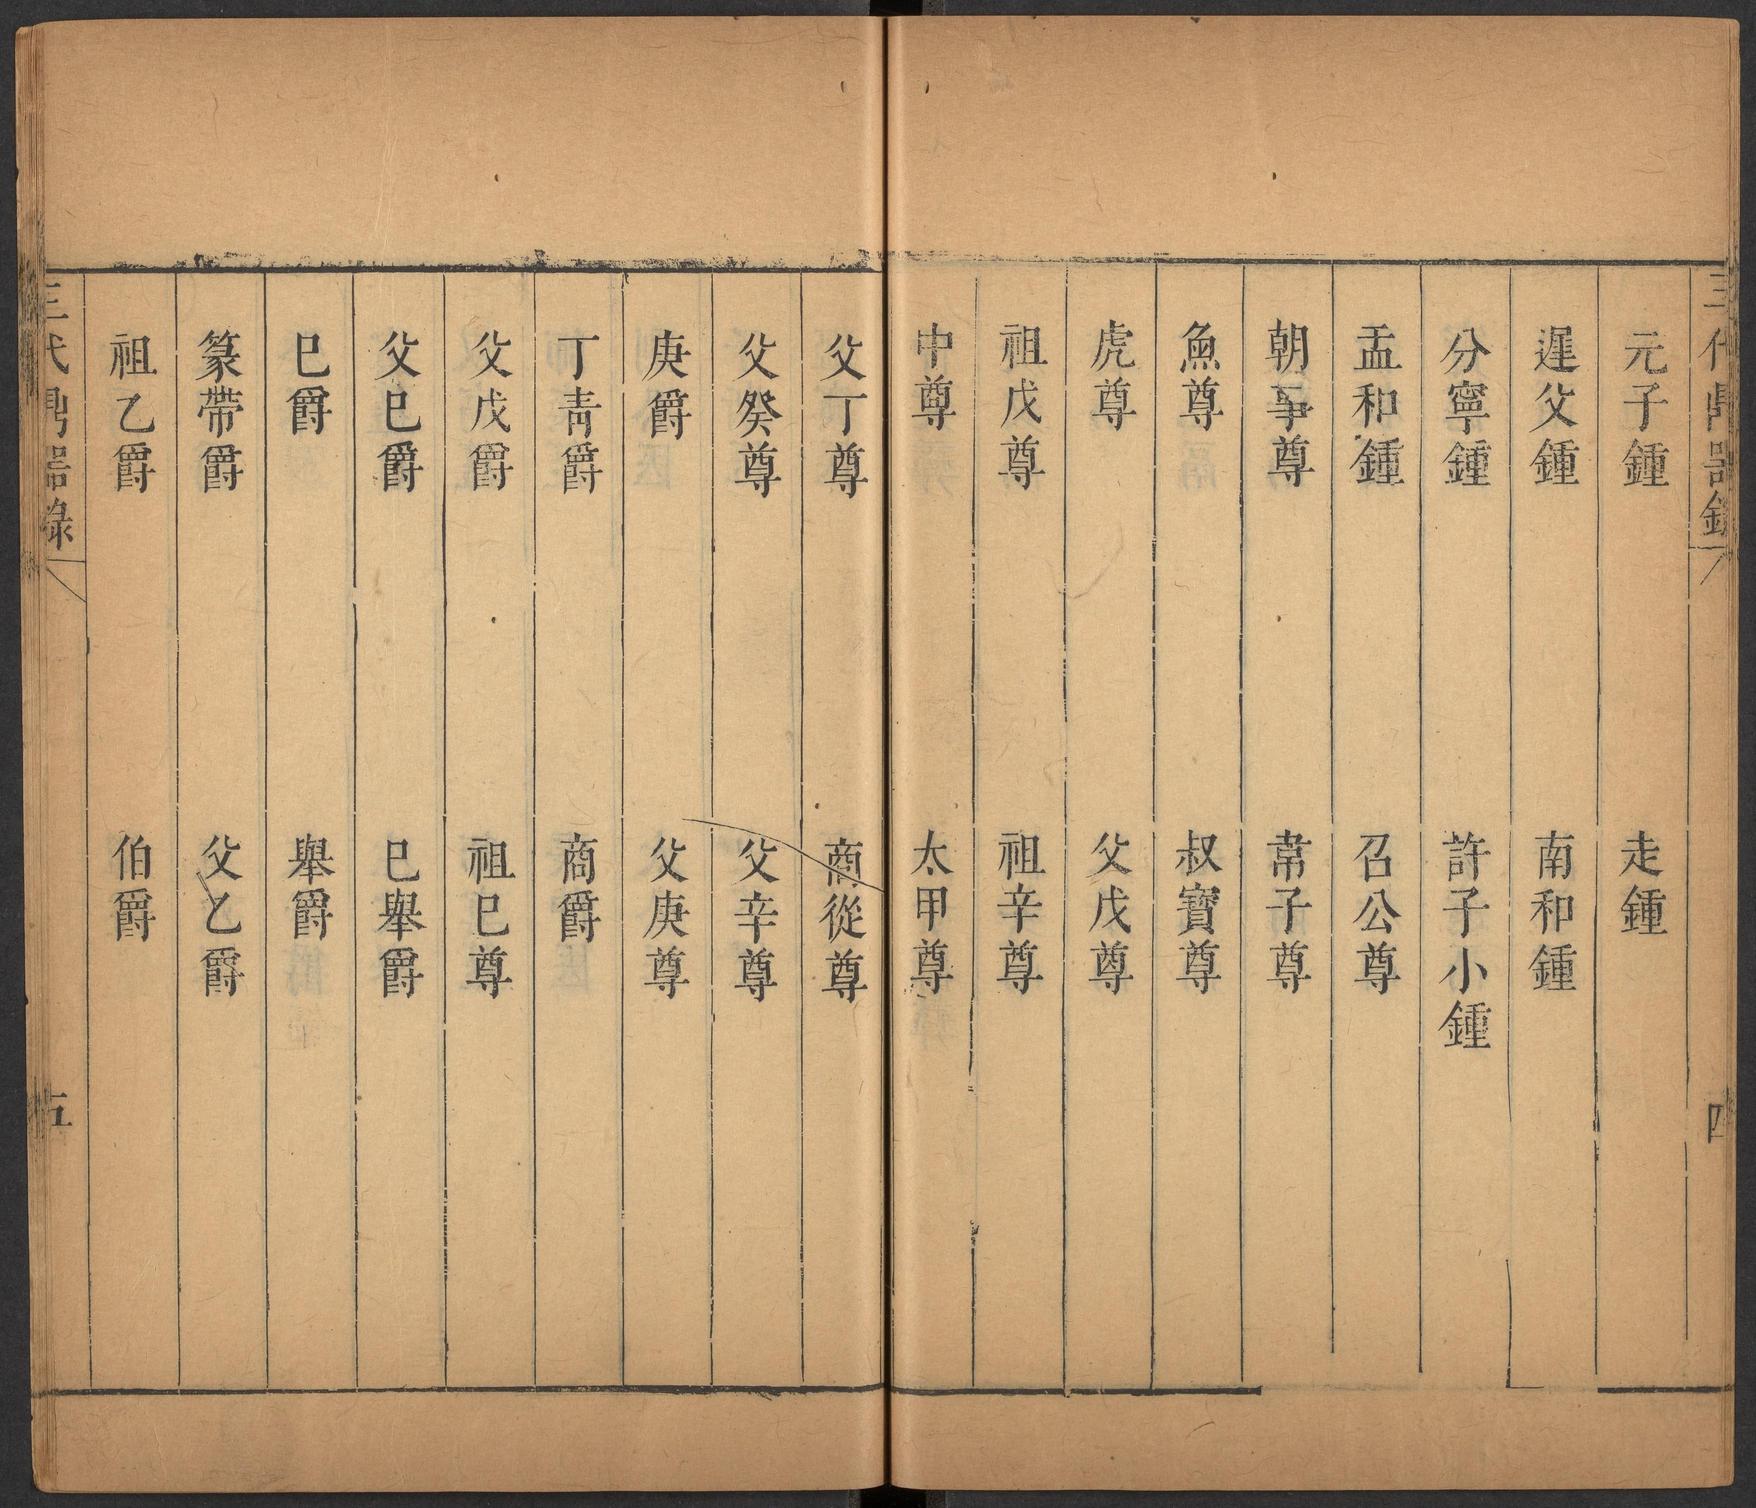 三代鼎器錄
四
元子鍾 走鍾
遲父鍾 南和鍾
分寧鍾 許子小鍾
盂和鍾 召公尊
朝事尊 𫶇子尊
魚尊 叔寶尊
虎尊 父戊尊
祖戊尊 祖辛尊
中尊 太甲尊
父丁尊 商從尊
父癸尊 父辛尊
庚爵 父庚尊
丁青爵 商爵
父戊爵 祖巳尊
父巳爵 巳舉爵
巳爵 舉爵
篆帶爵 父乙爵
祖乙爵 伯爵
三代鼎器錄
五